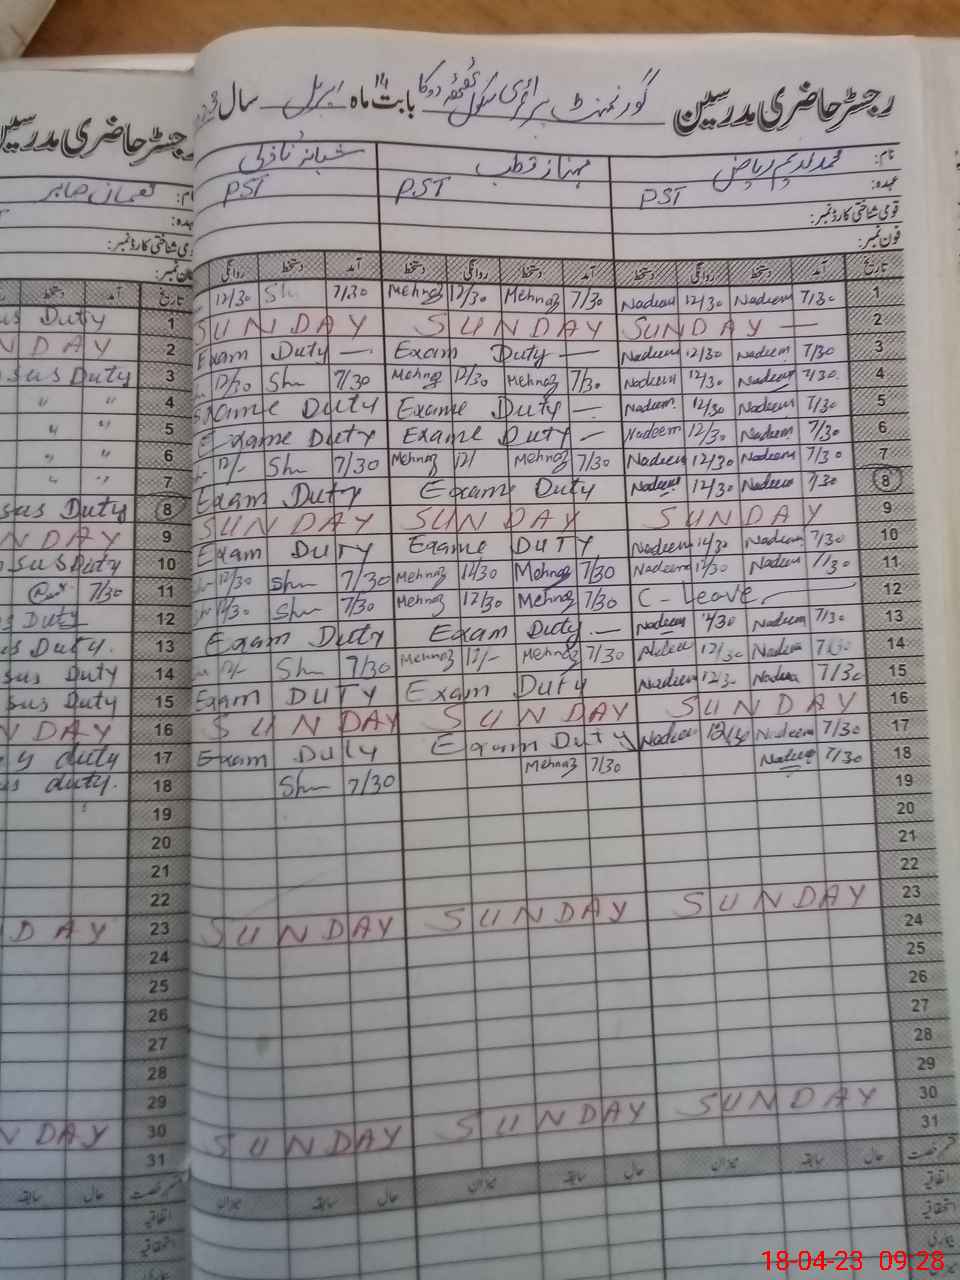 رجسٹر حاضری مدرسین گورنمنٹ پرائمری سکول بابت ماہ اپریل سال
نام: محمد ندیم ریاض مہناز قطب شبانہ نازلی
عہدہ: PST PST PST
قومی شناختی کارڈ نمبر:
فون نمبر:
تاریخ آمد دستخط روانگی دستخط آمد دستخط روانگی دستخط آمد دستخط روانگی
1 7/30 Nadeem 12/30 Nadeem 7/30 Mehnaz 12/30 Mehnaz 7/30 Sh 12/30
2 SUNDAY — SUNDAY SUNDAY
3 7/30 Nadeem 12/30 Nadeem Exam Duty — Exam Duty —
4 7/30 Nadeem 12/30 Nadeem 7/30 Mehnaz 12/30 Mehnaz 7/30 Sh 12/30
5 7/30 Nadeem 12/30 Nadeem Exame Duty — Exame Duty
6 7/30 Nadeem 12/30 Nadeem Exame Duty — Exame Duty
7 7/30 Nadeem 12/30 Nadeem 7/30 Mehnaz 12/ Mehnaz 7/30 Sh 12/-
8 7/30 Nadeem 12/30 Nadeem Exame Duty Exam Duty
9 SUNDAY SUNDAY SUNDAY
10 7/30 Nadeem Nadeem Exame DUTY Exam DUTY
11 7/30 Nadeem Nadeem 7/30 Mehnaz Mehnaz 7/30 Sh 12/30
12 C-Leave 7/30 Mehnaz 12/30 Mehnaz 7/30 Sh
13 7/30 Nadeem Nadeem Exam Duty — Exam Duty
14 7/30 Nadeem 12/30 7/30 Mehnaz 12/- Mehnaz 7/30 Sh 12/-
15 7/30 Nadeem 12/30 Nadeem Exam Duty Exam DUTY
16 SUNDAY SUNDAY SUNDAY
17 7/30 Nadeem 12/30 Nadeem Exam Duty Exam Duty
18 7/30 Nadeem 7/30 Mehnaz 7/30 Sh
19
20
21
22
23 SUNDAY SUNDAY SUNDAY
24
25
26
27
28
29
30 SUNDAY SUNDAY SUNDAY
31
قسم رخصت حال سابقہ میزان حال سابقہ میزان حال سابقہ میزان
اتفاقیہ
استحقاقیہ
بیماری
رجسٹر حاضری مدرسین
نام: نعمان صابر
عہدہ:
قومی شناختی کارڈ نمبر:
فون نمبر:
تاریخ آمد دستخط
1 sus Duty
2 NDAY
3 sus Duty
4 " "
5 " "
6 " "
7 " "
8 sus Duty
9 NDAY
10 sus Duty
11 7/30
12 s Duty
13 us Duty.
14 sus Duty
15 sus Duty
16 NDAY
17 y duty
18 us duty.
19
20
21
22
23 DAY
24
25
26
27
28
29
30 NDAY
31
قسم رخصت حال سابقہ
اتفاقیہ
استحقاقیہ
بیماری
18-04-23 09:28